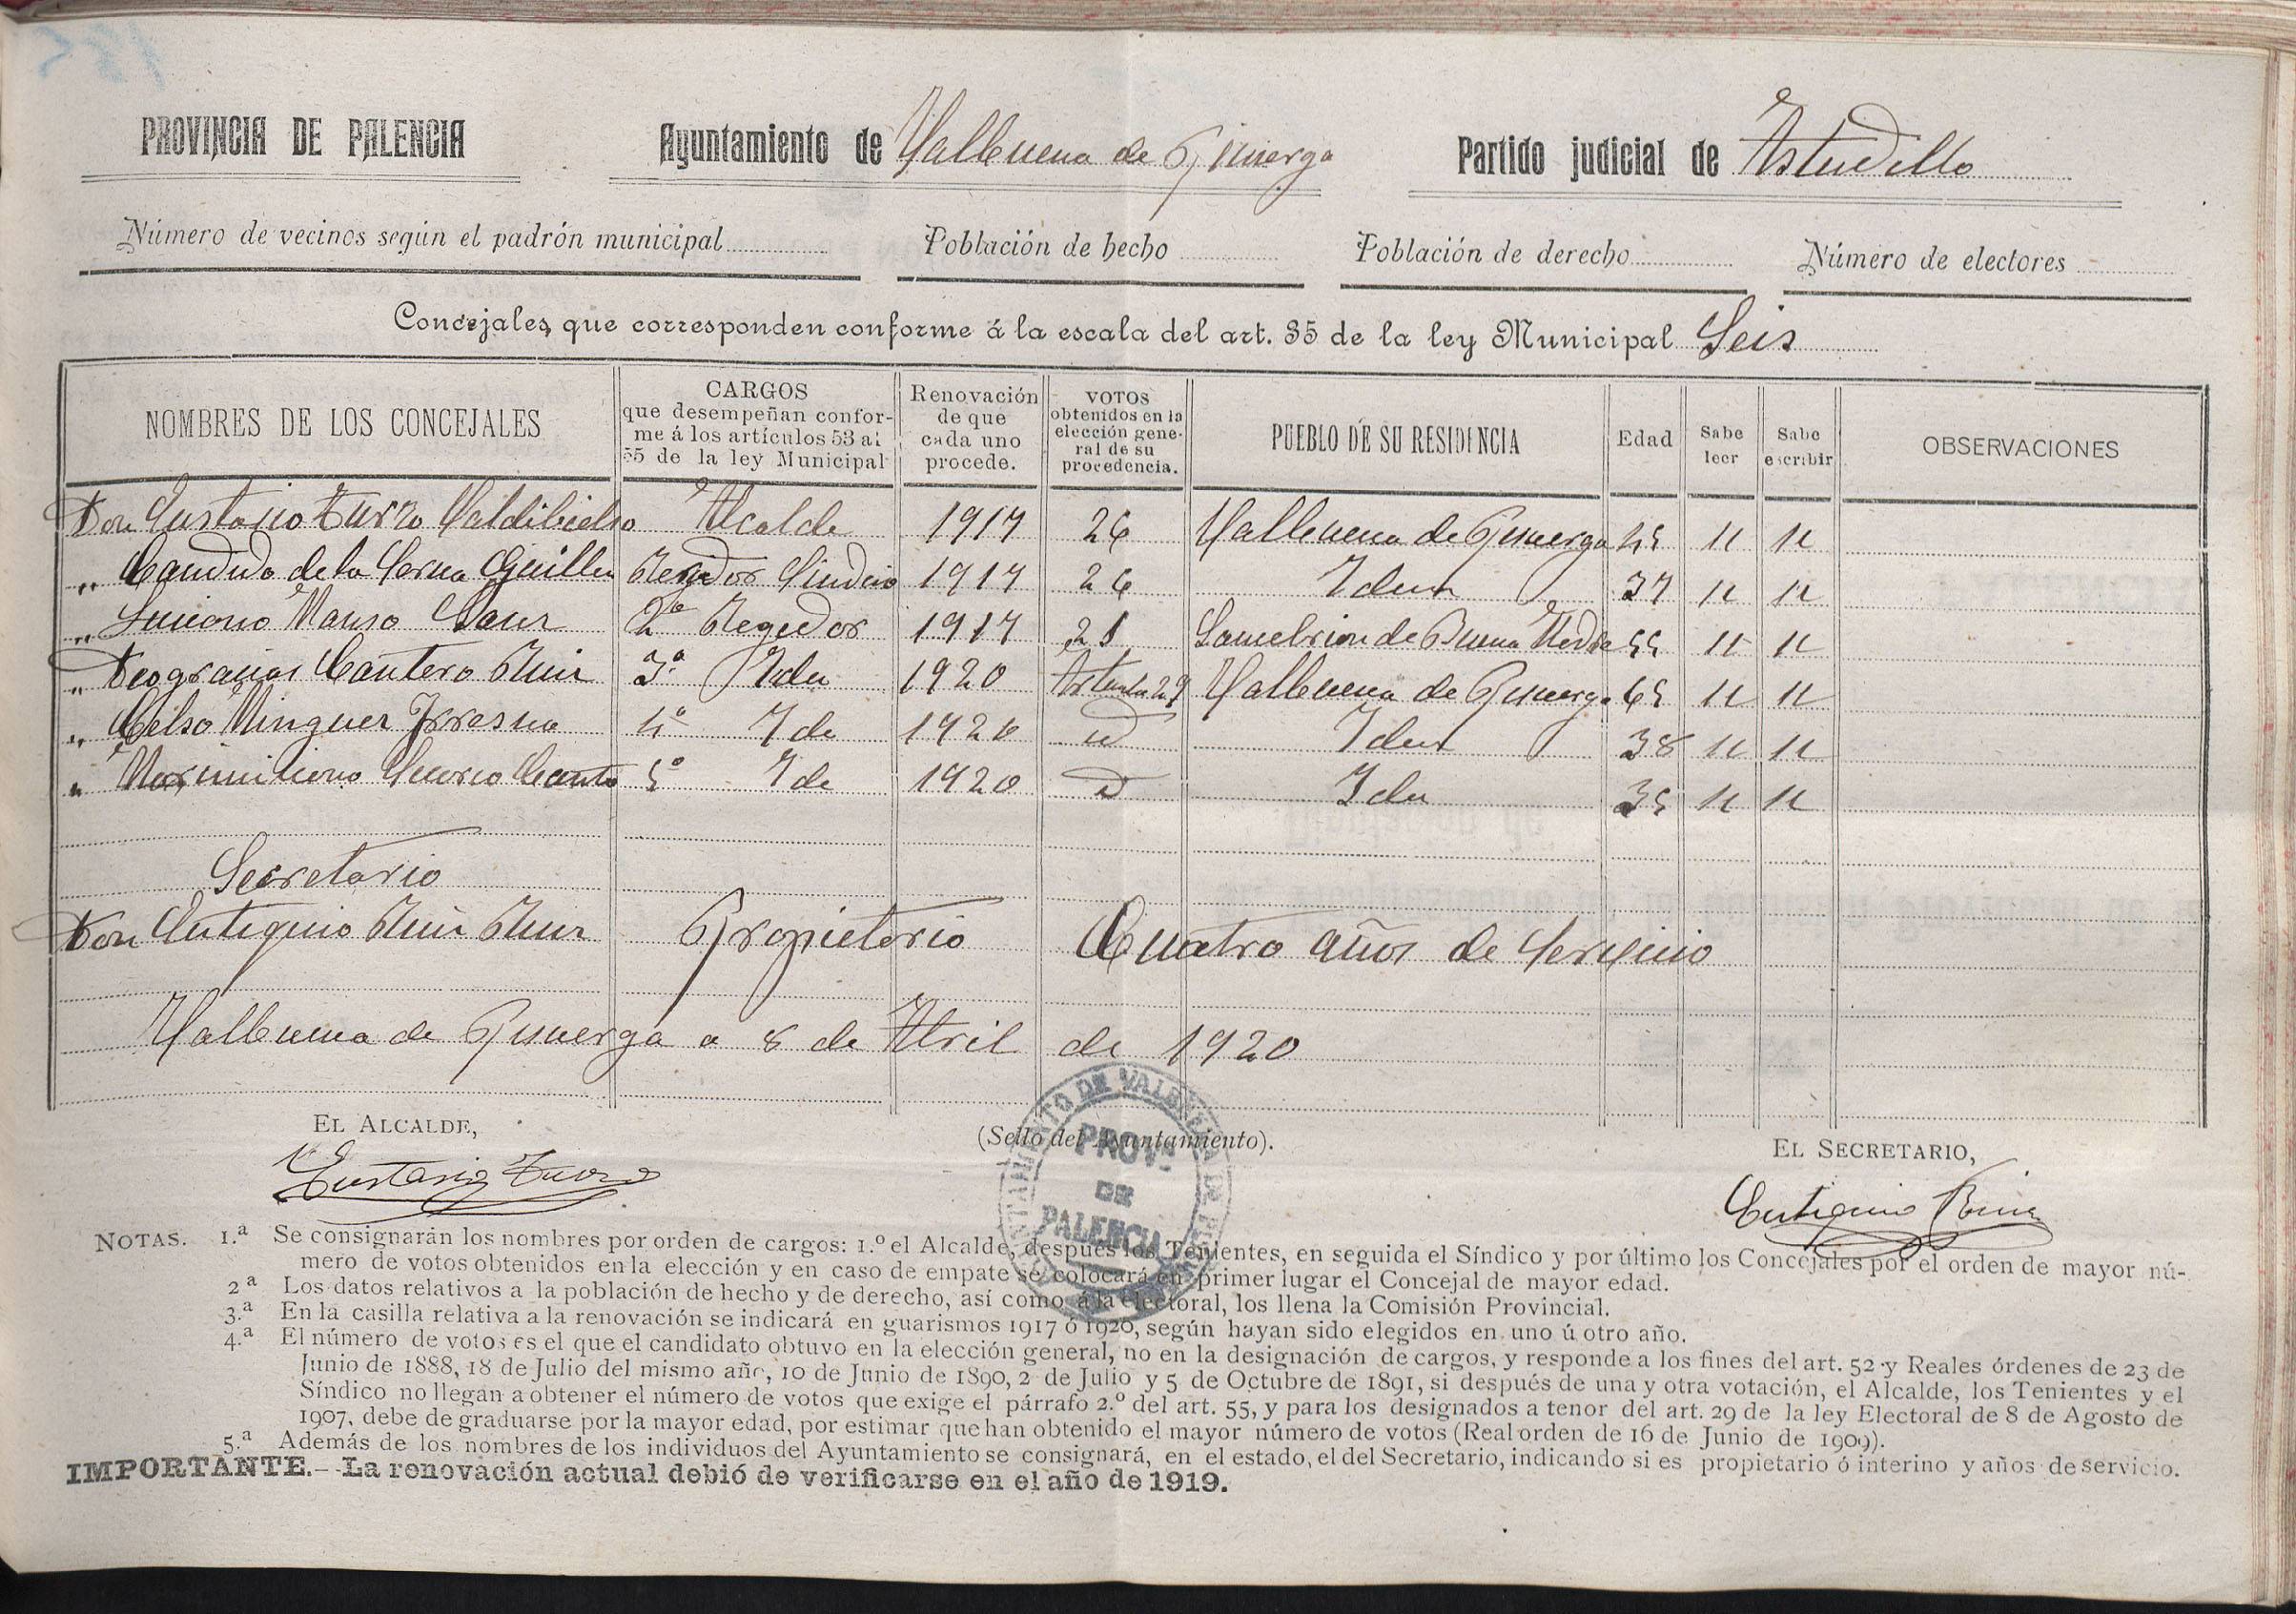 PROVINCIA DE PALENCIA Ayuntamiento de Valbuena de Pisuerga Partido judicial de Astudillo
Número de vecinos según el padrón municipal Población de hecho Población de derecho Número de electores
Concejales que corresponden conforme á la escala del art. 35 de la ley Municipal Seis
NOMBRES DE LOS CONCEJALES
CARGOS
que desempeñan confor-
me á los artículos 53 al
55 de la ley Municipal
Renovación
de que
cada uno
procede.
VOTOS
obtenidos en la
elección gene-
ral de su
procedencia.
PUEBLO DE SU RESIDENCIA
Edad
Sabe
leer
Sabe
escribir
OBSERVACIONES
Don Eustasio Zurro Valdibielso Alcalde 1917 26 Valbuena de Pisuerga 45 11 11
" Candido de la Serna Guillen Regidor Sindico 1917 26 Idem 37 11 11
" Luciano Manso Regidor 1917 21 de Buena Vedra 55 11 11
" Deogracias Cantero Ruiz 3º Idem 1920 29 Valbuena de Pisuerga 65 11 11
" Celso Minguez 4º Ide 1920 id Idem 38 11 11
" Maximiliano 5º Ide 1920 id Idem 35 11 11
Secretario
Don Eutiquio Ruiz Ruiz Propietario Cuatro años de servicio
Valbuena de Pisuerga a 8 de Abril de 1920
EL ALCALDE,
Eustasio Zurro
(Sello del Ayuntamiento).
AYUNTAMIENTO DE VALBUENA DE PISUERGA
PROV.ª
DE
PALENCIA
EL SECRETARIO,
Eutiquio Ruiz
NOTAS. 1.ª Se consignarán los nombres por orden de cargos: 1.º el Alcalde, después los Tenientes, en seguida el Síndico y por último los Concejales por el orden de mayor nú-
mero de votos obtenidos en la elección y en caso de empate se colocará en primer lugar el Concejal de mayor edad.
2ª Los datos relativos a la población de hecho y de derecho, así como á la electoral, los llena la Comisión Provincial.
3.ª En la casilla relativa a la renovación se indicará en guarismos 1917 ó 1920, según hayan sido elegidos en uno ú otro año.
4.ª El número de votos es el que el candidato obtuvo en la elección general, no en la designación de cargos, y responde a los fines del art. 52 y Reales órdenes de 23 de
Junio de 1888, 18 de Julio del mismo año, 10 de Junio de 1890, 2 de Julio y 5 de Octubre de 1891, si después de una y otra votación, el Alcalde, los Tenientes y el
Síndico no llegan a obtener el número de votos que exige el párrafo 2.º del art. 55, y para los designados a tenor del art. 29 de la ley Electoral de 8 de Agosto de
1907, debe de graduarse por la mayor edad, por estimar que han obtenido el mayor número de votos (Real orden de 16 de Junio de 1909).
5.ª Además de los nombres de los individuos del Ayuntamiento se consignará, en el estado, el del Secretario, indicando si es propietario ó interino y años de servicio.
IMPORTANTE.- La renovación actual debió de verificarse en el año de 1919.